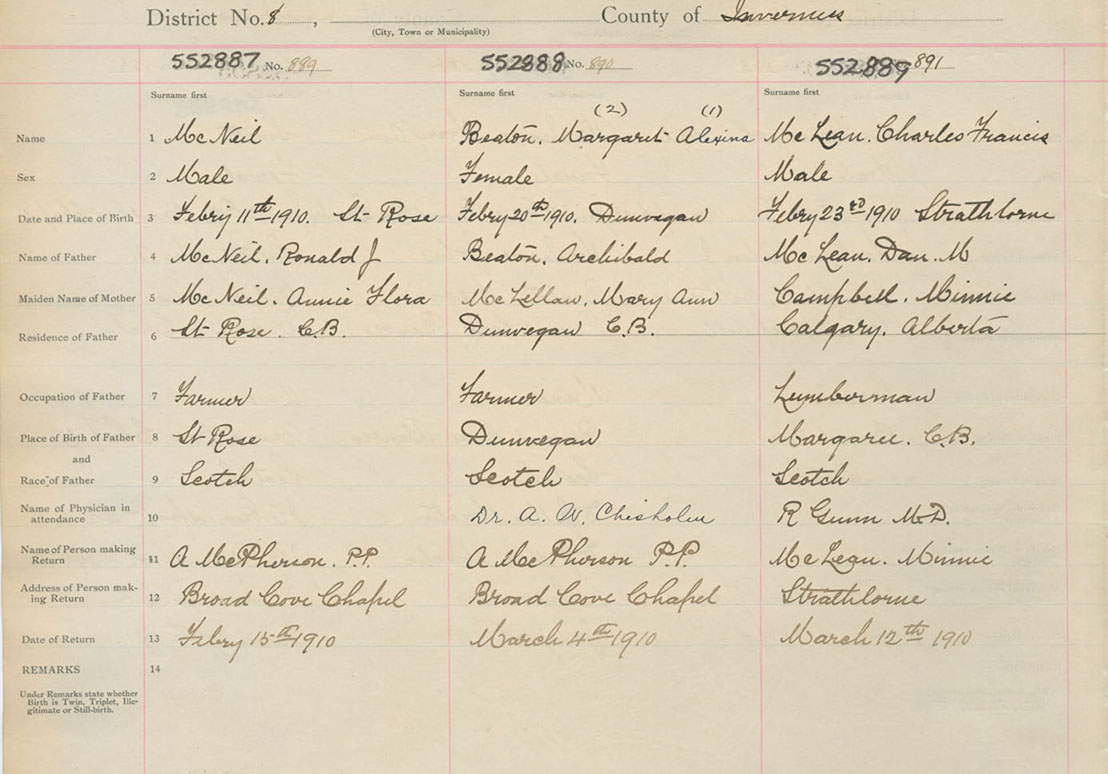 District No. 8 , County of Inverness
(City, Town or Municipality)
552887 No. 889 552888 No. 890 552889 891
Surname first Surname first Surname first
(2) (1)
Name 1 McNeil Beaton. Margaret Alexina McLean. Charles Francis
Sex 2 Male Female Male
Date and Place of Birth 3 Febry 11th 1910. St Rose Febry 20th 1910. Dunvegan Febry 23rd 1910 Strathlorne
Name of Father 4 McNeil, Ronald J Beaton, Archibald McLean, Dan. M
Maiden Name of Mother 5 McNeil. Annie Flora McLellan, Mary Ann Campbell. Minnie
Residence of Father 6 St Rose. C.B. Dunvegan C.B. Calgary, Alberta
Occupation of Father 7 Farmer Farmer Lumberman
Place of Birth of Father 8 St Rose Dunvegan Margaree. C.B.
and
Race of Father 9 Scotch Scotch Scotch
Name of Physician in attendance 10 Dr. A. W. Chisholm R Gunn M.D.
Name of Person making Return 11 A McPherson. P.P. A McPherson P.P. McLean. Minnie
Address of Person mak-ing Return 12 Broad Cove Chapel Broad Cove Chapel Strathlorne
Date of Return 13 Febry 15th 1910 March 4th 1910 March 12th 1910
REMARKS 14
Under Remarks state whether
Birth is Twin, Triplet, Ille-
gitimate or Still-birth.